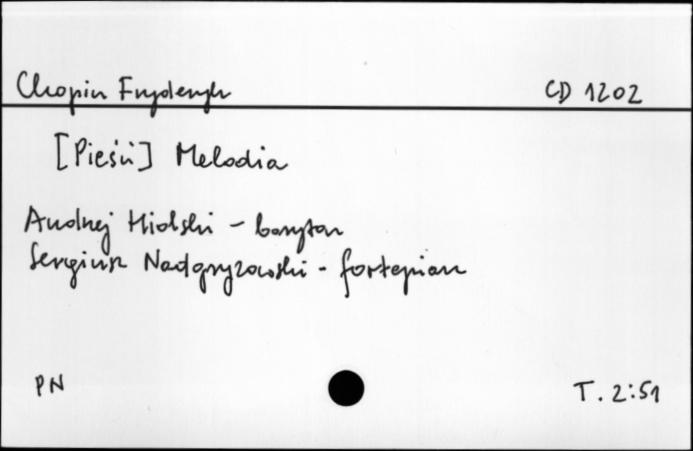 Chopin Fryderyk
CD 1202
[Pieśń] Melodia
Andrzej Hiolski - baryton
Sergiusz Nadgryzowski - fortepian
PN
T. 2:51